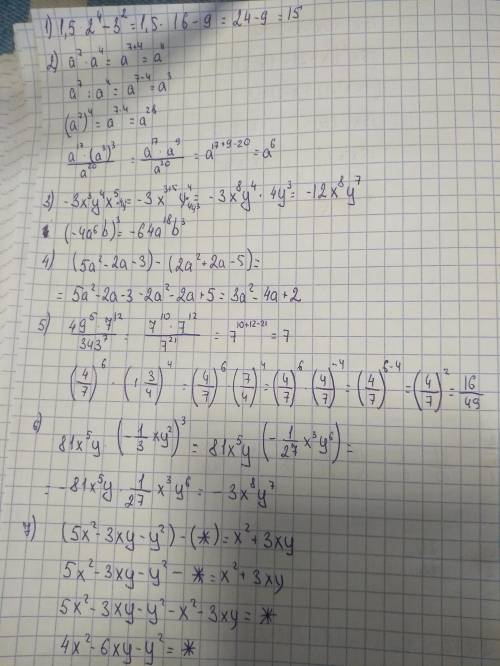 1) 1,5 · 2⁴ - 3² = 1,5 · 16 - 9 = 24 - 9 = 15
2) a⁷ · a⁴ = a⁷⁺⁴ = a¹¹
a⁷ : a⁴ = a⁷⁻⁴ = a³
(a⁷)⁴ = a⁷·⁴ = a²⁸
a¹⁷ · (a³)³ / a²⁰ = a¹⁷ · a⁹ / a²⁰ = a¹⁷⁺⁹⁻²⁰ = a⁶
= -3x³⁺⁵ = -3x⁸y⁴ · 4y³ = -12x⁸y⁷
(-4a⁶b)³ = -64a¹⁸b³
4) (5a² - 2a - 3) - (2a² + 2a - 5) =
= 5a² - 2a - 3 - 2a² - 2a + 5 = 3a² - 4a + 2
5) 49⁵ · 7¹² / 343⁷ = 7¹⁰ · 7¹² / 7²¹ = 7¹⁰⁺¹²⁻²¹ = 7
(4/7)⁶ · (1 3/4)⁴ = (4/7)⁶ · (7/4)⁴ = (4/7)⁶ · (4/7)⁻⁴ = (4/7)⁶⁻⁴ = (4/7)² = 16/49
6) 81x⁵y · (-1/3 xy²)³ = 81x⁵y (-1/27 x³y⁶) =
= -81x⁵y · 1/27 x³y⁶ = -3x⁸y⁷
7) (5x² - 3xy - y²) - (*) = x² + 3xy
5x² - 3xy - y² - * = x² + 3xy
5x² - 3xy - y² - x² - 3xy = *
4x² - 6xy - y² = *